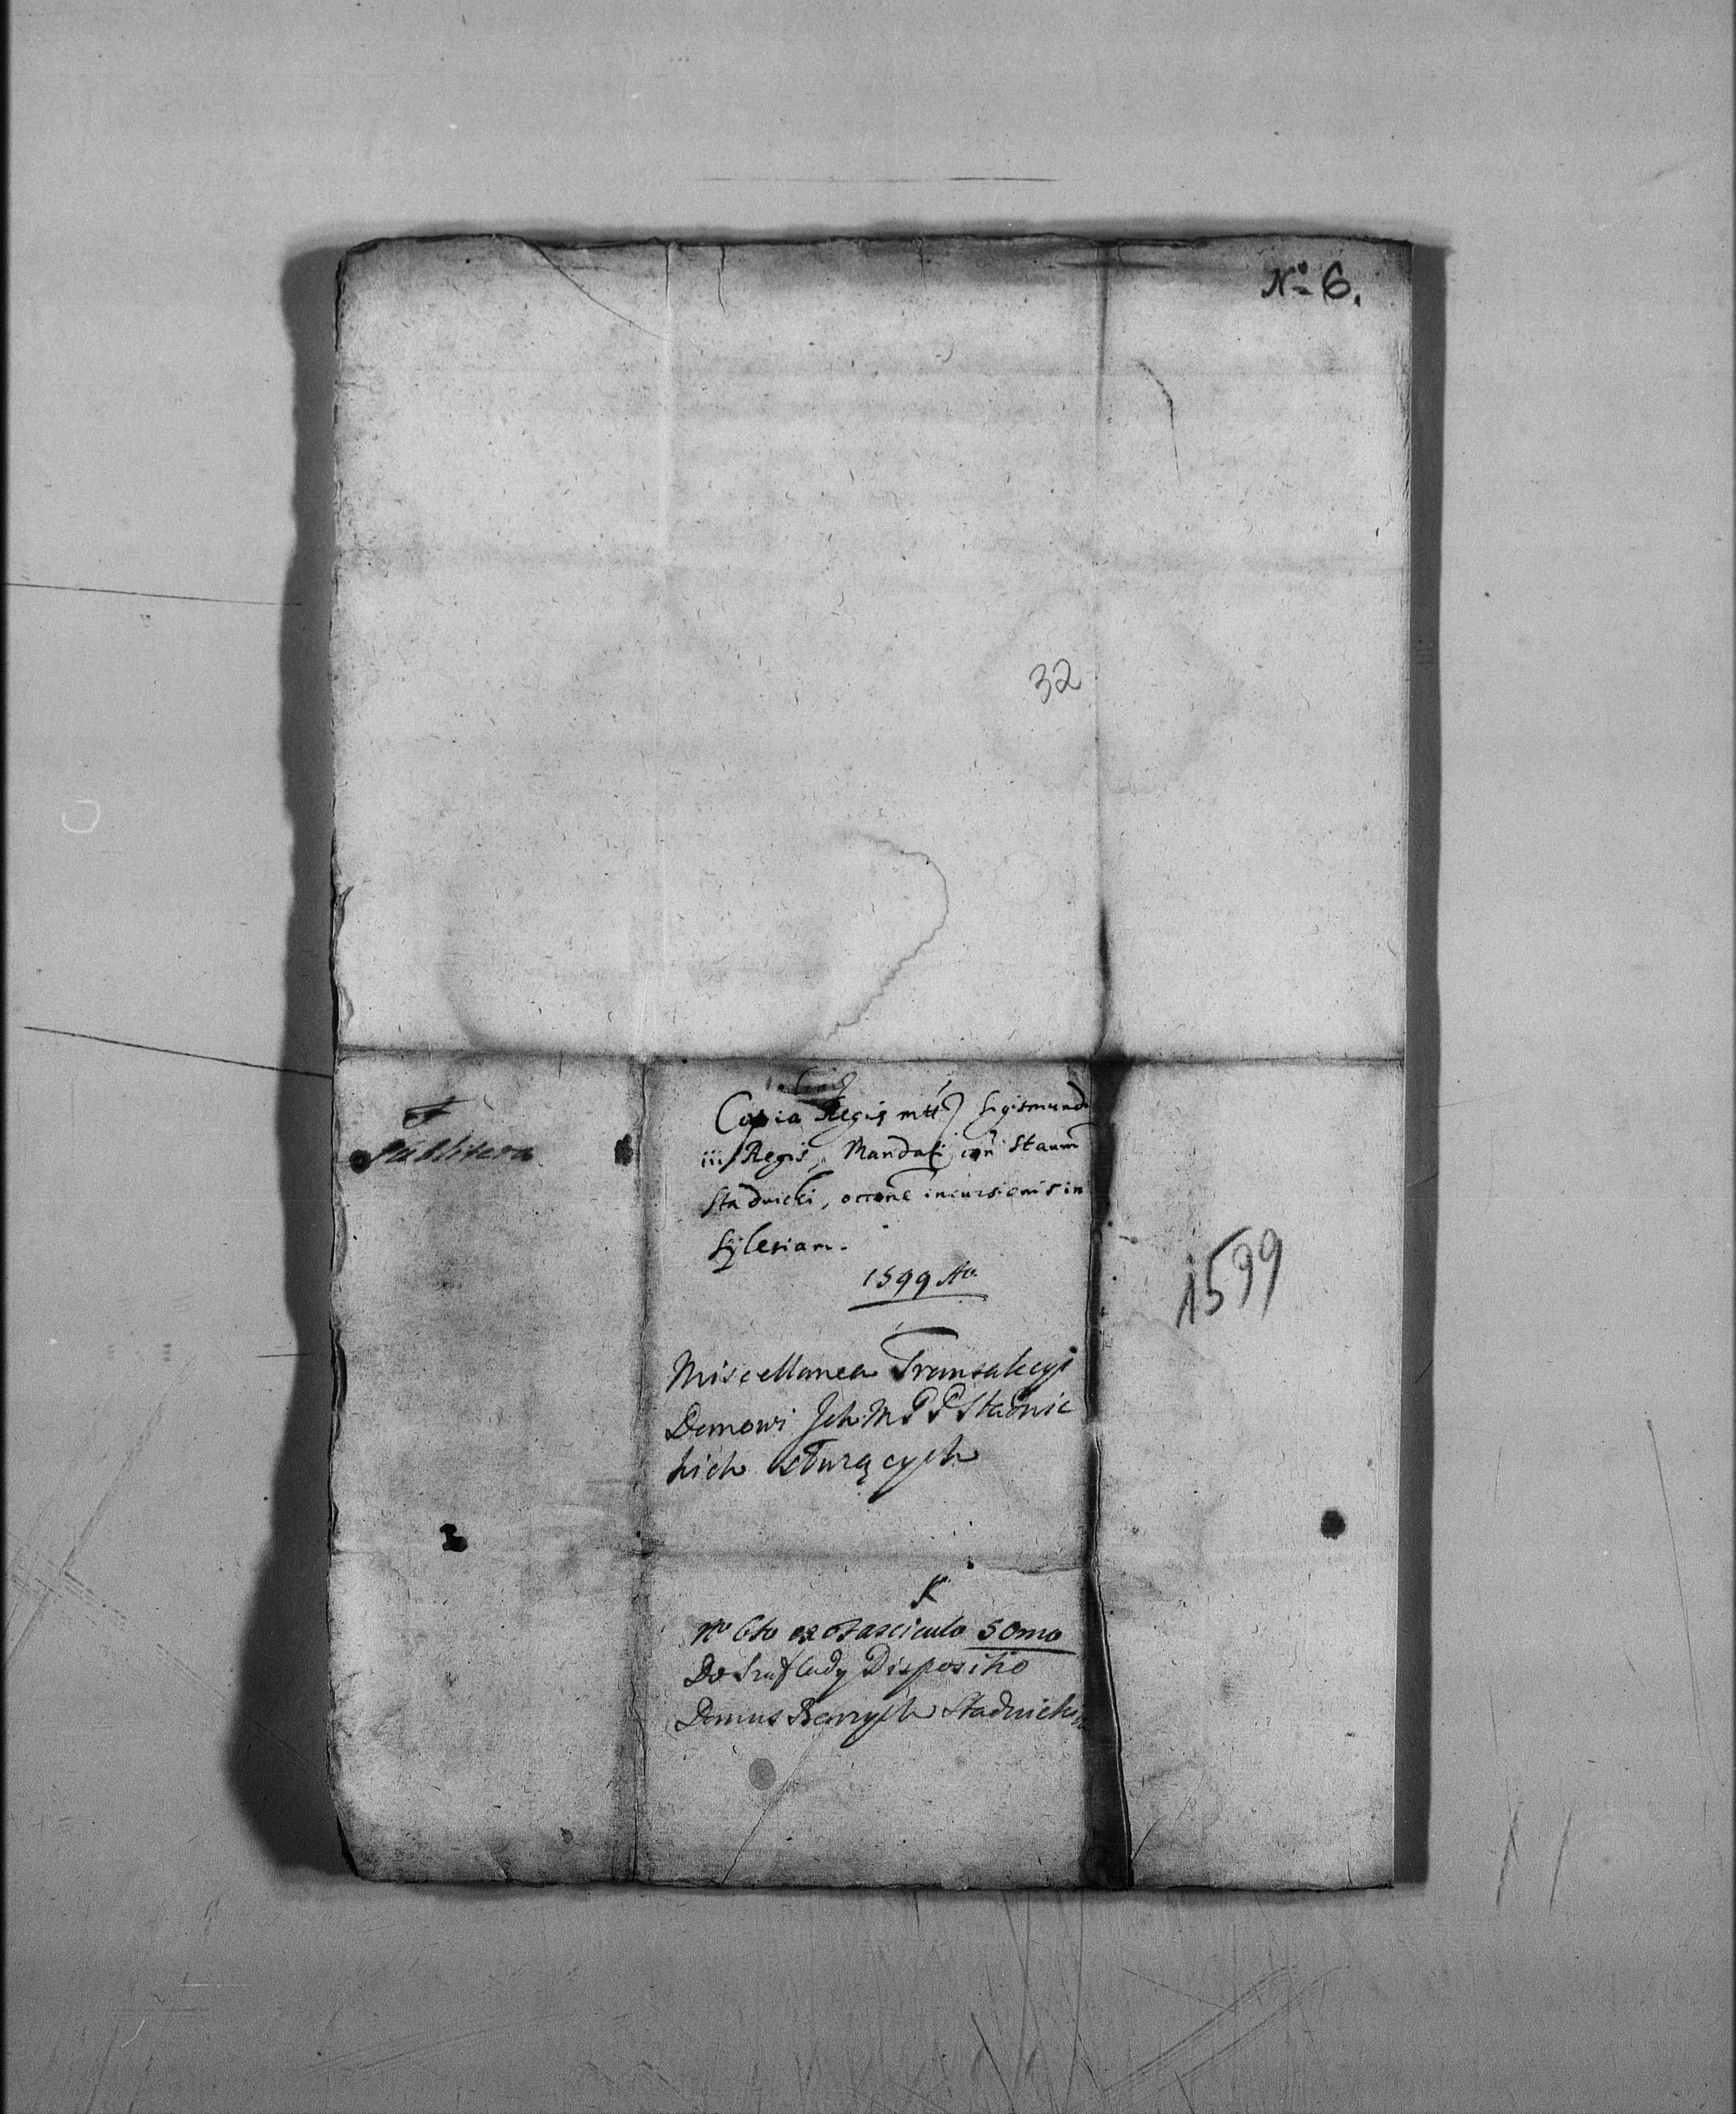 No 6.
32
F
Sub litera
Copia Regis mtt Sigismundi
iii Regis, Mandati con Staum
Stadnicki, occone incursionis in
Sylesiam.
1599 Ao
1599
Miscellanea Transakcyi
Domowi Jch M P P Stadnic
kich słurzących
K
No 6to ex Fasciculo 50mo
Do Szuflady Dispositio
Domus Stadnickich